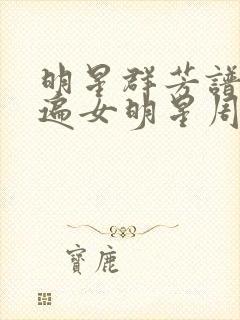 明星群芳譜
遍女明星周
寶鹿